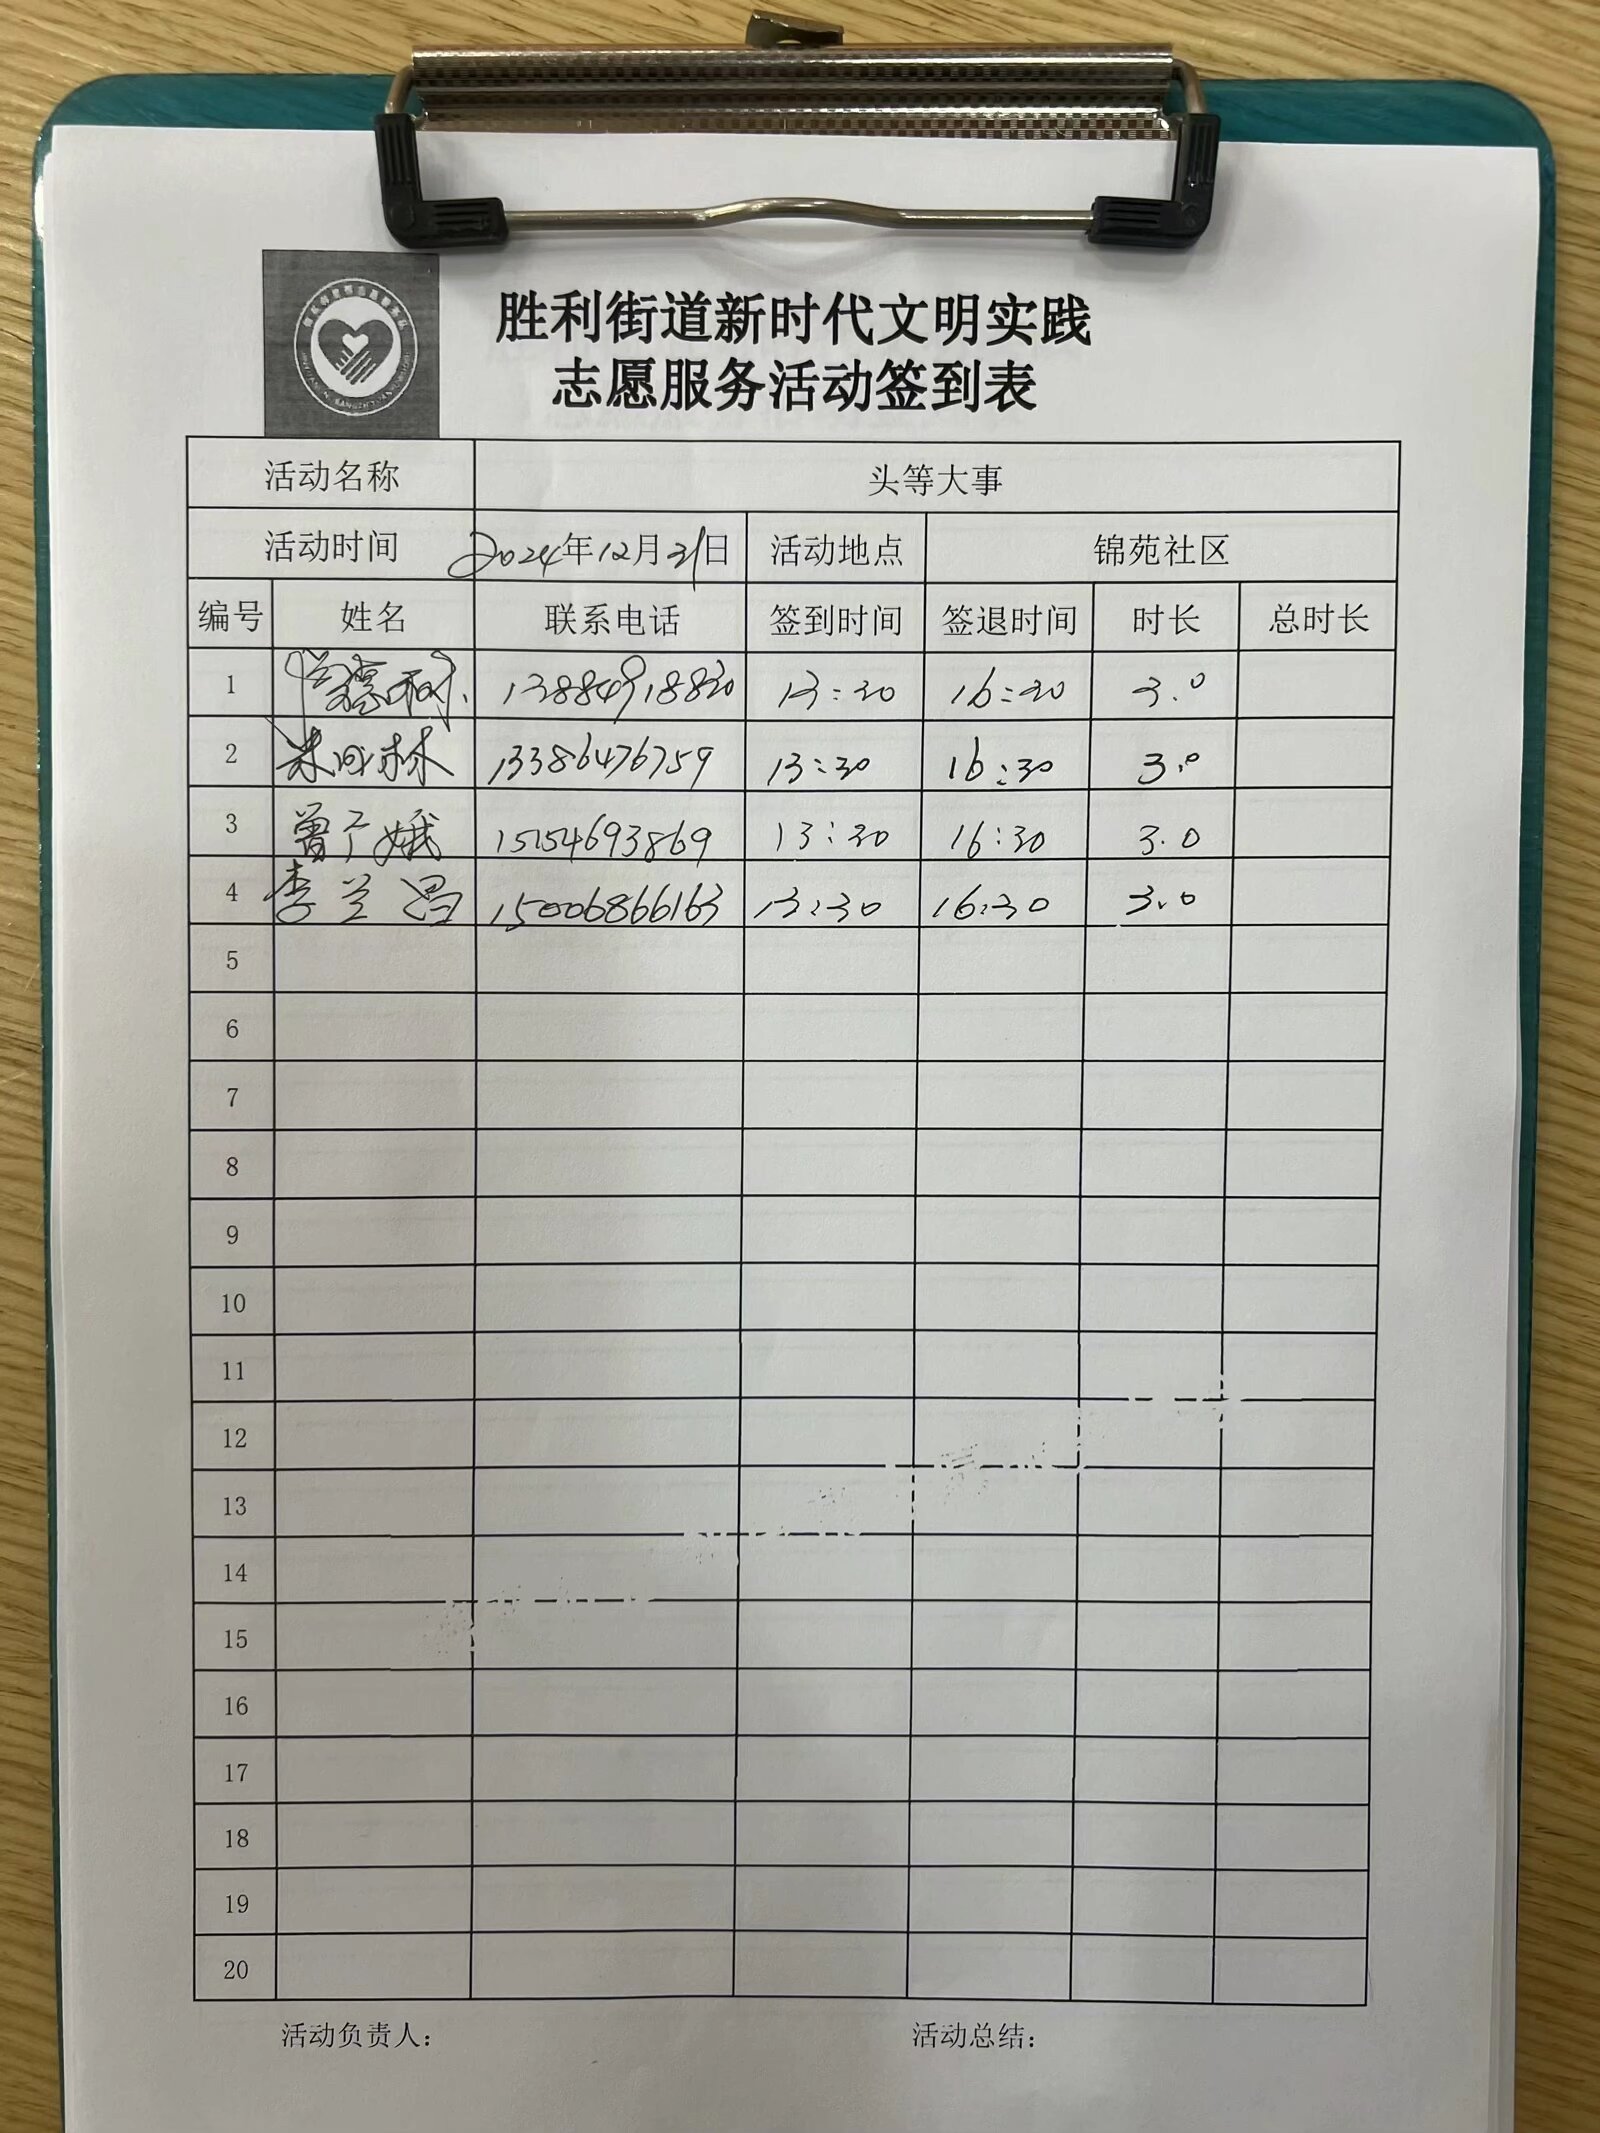 胜利街道新时代文明实践
志愿服务活动签到表
活动名称 头等大事
活动时间 2024年12月31日 活动地点 锦苑社区
编号 姓名 联系电话 签到时间 签退时间 时长 总时长
1 13884918830 13:30 16:30 3.0
2 13386476759 13:30 16:30 3.0
3 曾广娥 15154693869 13:30 16:30 3.0
4 李兰昌 15006866163 13:30 16:30 3.0
5
6
7
8
9
10
11
12
13
14
15
16
17
18
19
20
活动负责人: 活动总结: